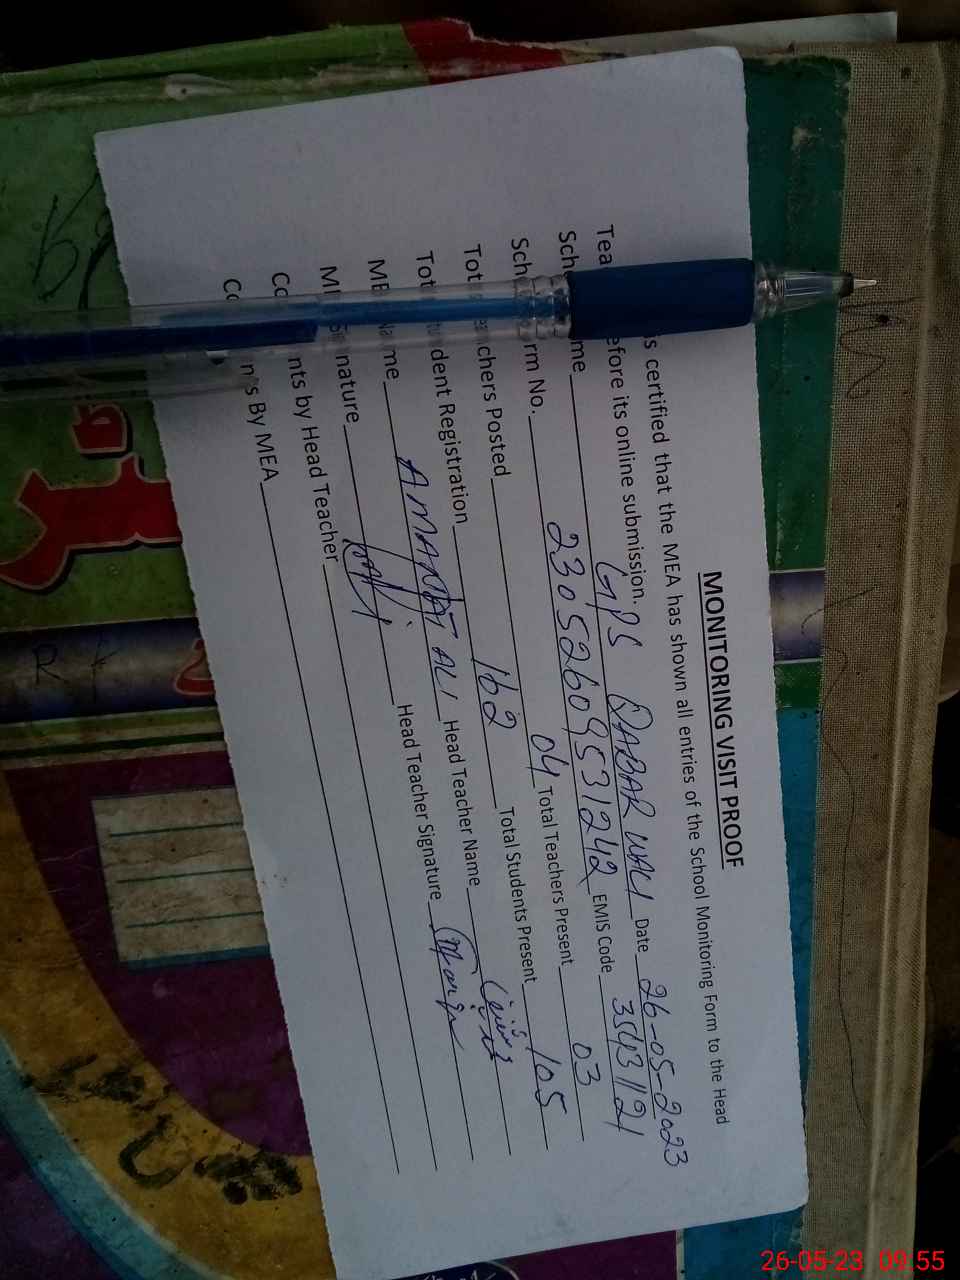 MONITORING VISIT PROOF
s certified that the MEA has shown all entries of the School Monitoring Form to the Head
Tea efore its online submission.
Sch me GPS DARBAR WALI Date 26-05-2023
Sch rm No. 23052609531242 EMIS Code
Tot chers Posted 04 Total Teachers Present 03
Tot dent Registration 162 Total Students Present 105
ME Name AMANAT ALI Head Teacher Name
ME nature Head Teacher Signature
Co nts by Head Teacher
Co n s By MEA
26-05-23 09:55